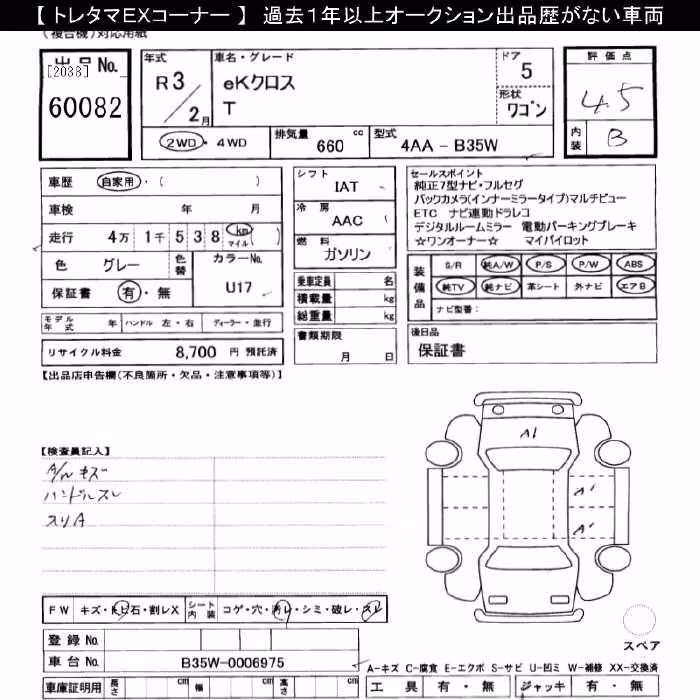 【 トレタマEXコーナー 】 過去1年以上オークション出品歴がない車両
(複合機)対応用紙
出品No.
[2038]
60082
年式
R 3 / 2月
車名・グレード
eKクロス
T
ドア
5
形状
ワゴン
評価点
4.5
内装
B
2WD・4WD
排気量 cc
660
型式
4AA - B35W
車歴 自家用・( )
車検 年 月
走行 4万 1千 5 3 8 km マイル ( )
色 グレー
色替
カラーNo.
U17
保証書 有・無
モデル年式 年
ハンドル 左・右
ディーラー・並行
リサイクル料金 8,700 円 預託済
シフト
IAT
冷房
AAC
燃料
ガソリン
乗車定員 名
積載量 kg
総重量 kg
書類期限
月 日
セールスポイント
純正7型ナビ・フルセグ
バックカメラ(インナーミラータイプ)マルチビュー
ETC ナビ連動ドラレコ
デジタルルームミラー 電動パーキングブレーキ
☆ワンオーナー☆ マイパイロット
装備品
S/R 純A/W P/S P/W ABS
純TV 純ナビ 革シート 外ナビ エアB
ナビ型番:
後日品
保証書
【出品店申告欄(不良箇所・欠品・注意事項等)】
【検査員記入】
A/W キズ
ハンドルスレ
スリA
A1
A1
A1
FW キズ・トビ石・割レX
シート内装 コゲ・穴・汚レ・シミ・破レ・スレ
登録No.
車台No. B35W-0006975
車庫証明用 長さ cm 幅 cm 高さ cm
スペア
A-キズ C-腐食 E-エクボ S-サビ U-凹ミ W-補修 XX-交換済
工具 有・無 ジャッキ 有・無